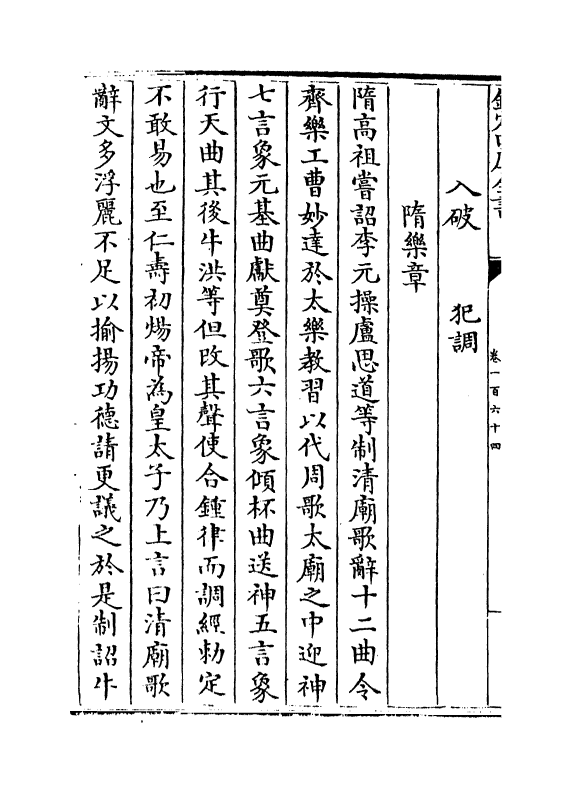 欽定四庫全書
卷一百六十四
入破　犯調
隋樂章
隋高祖嘗詔李元操盧思道等制清廟歌辭十二曲令
齊樂工曹妙達於太樂教習以代周歌太廟之中迎神
七言象元基曲獻奠登歌六言象傾杯曲送神五言象
行天曲其後牛洪等但改其聲使合鍾律而調經勅定
不敢易也至仁壽初煬帝為皇太子乃上言曰清廟歌
辭文多浮麗不足以揄揚功德請更議之於是制詔牛